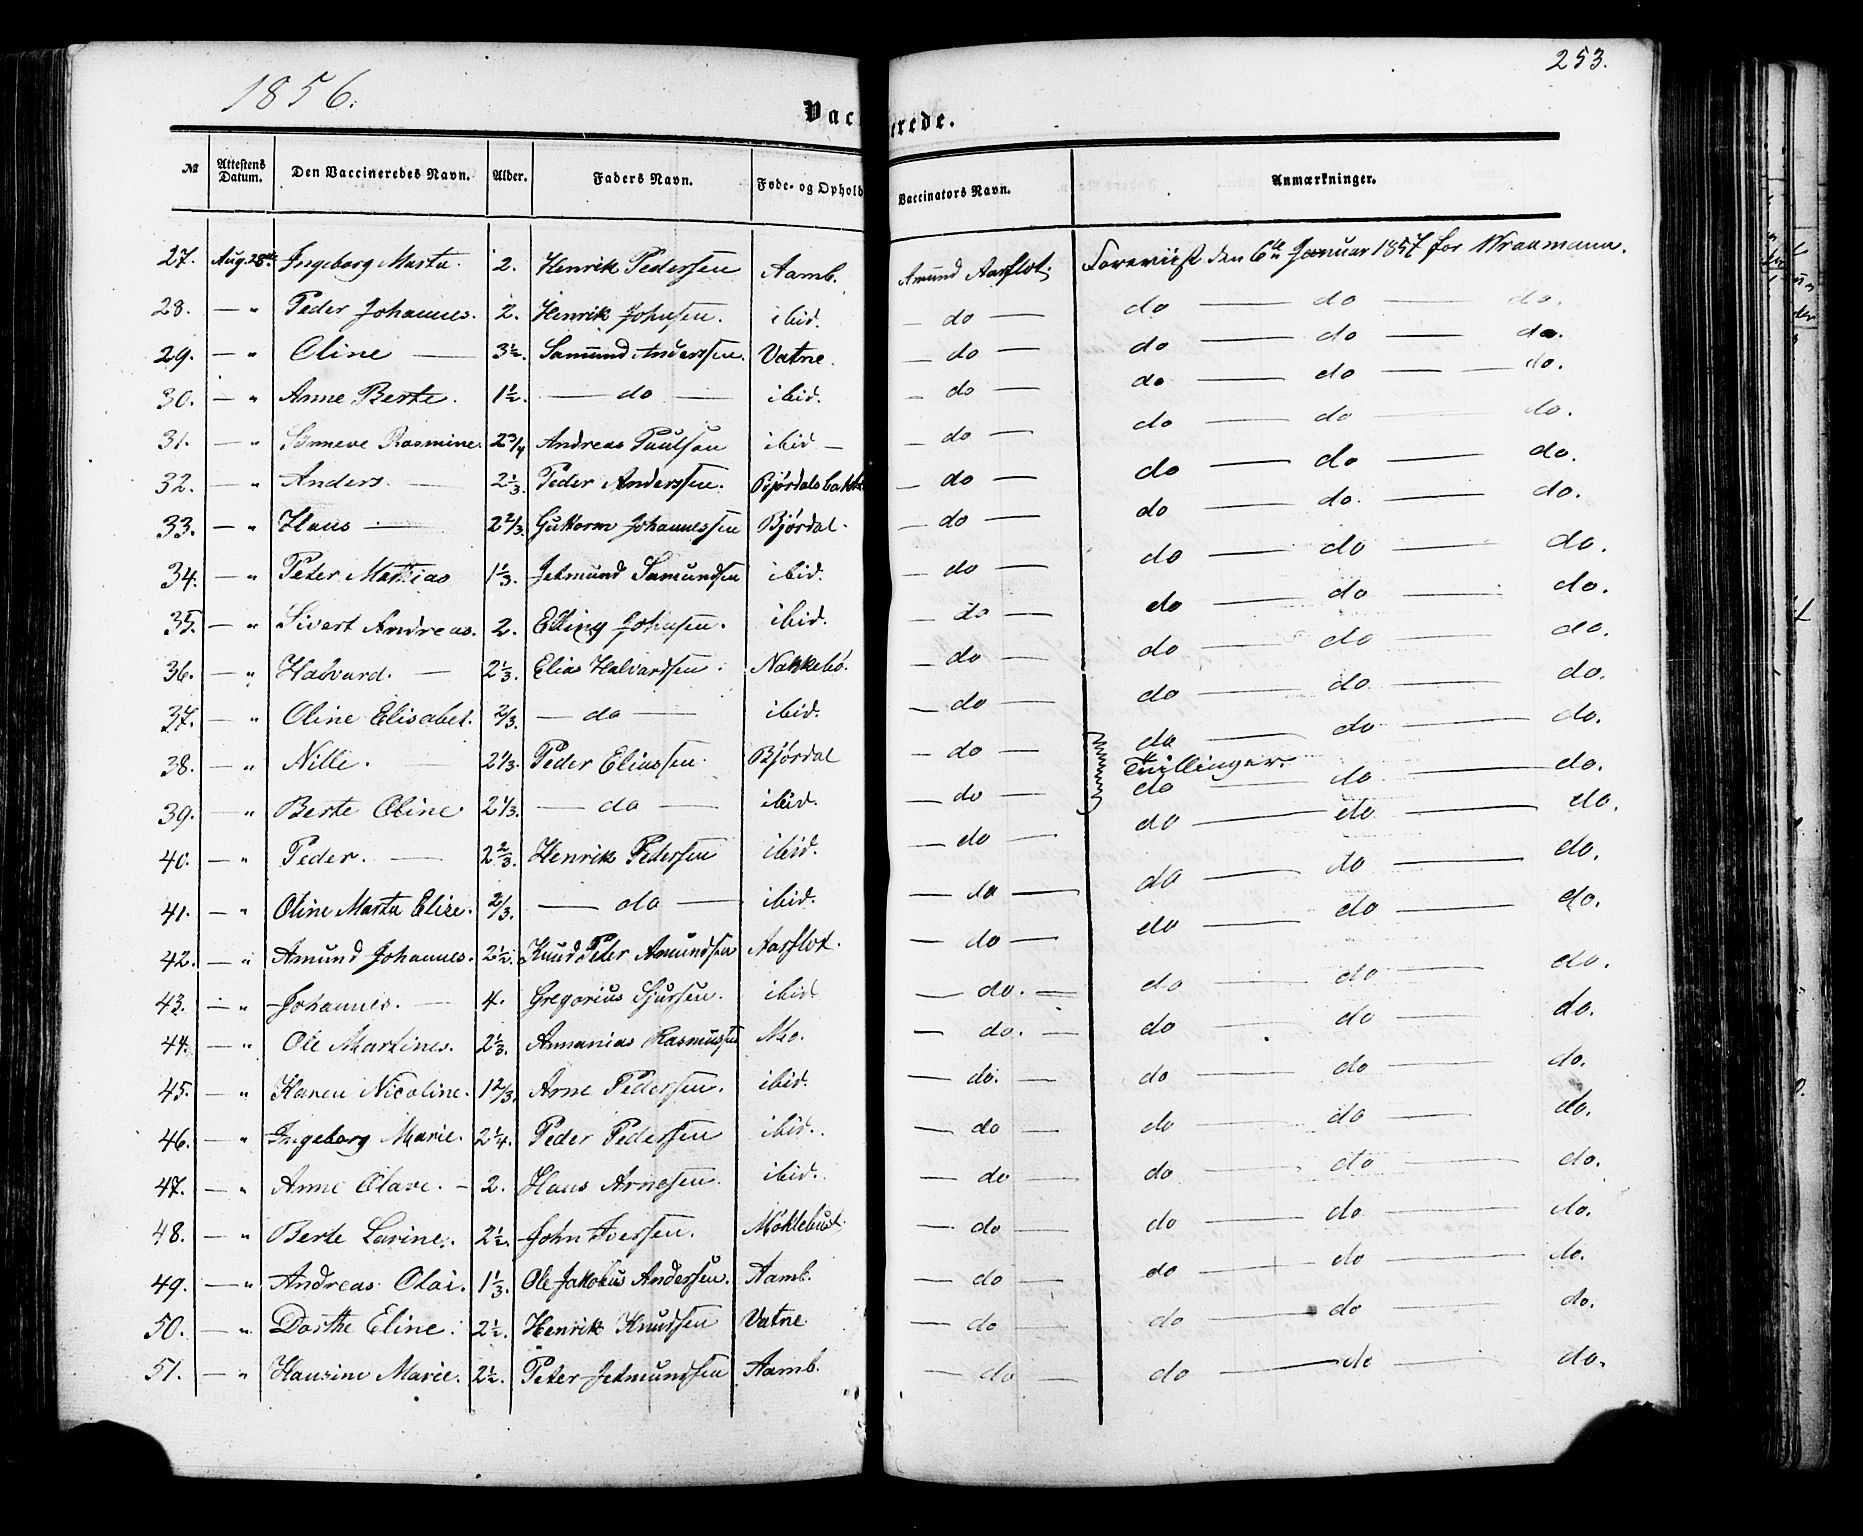 1856.
253.
Vac erede.
№ Attestens Datum. Den Vaccineredes Navn. Alder. Faders Navn. Føde- og Ophold Vaccinators Navn. Anmærkninger.
27. Aug. 28de Ingeborg Marta. 2. Henrik Pederssen Aamb. Amund Aarflot. Foreviist den 6te Januar 1857 for
28. — " Peder Johannes. 2. Henrik Johnsen. ibid. — do — do — do — do.
29. — " Oline — 3½. Samund Anderssen. Vatne. — do — do — do — do.
30. — " Anne Berte. 1½. — do — ibid. — do — do — do — do.
31. — " Synneve Rasmine. 2¾ Andreas Paulsen ibid — — do — do — do — do.
32. — " Anders. — 2⅓. Peder Anderssen. Bjørdalsbakke — do — do — do — do.
33. — " Hans — 2⅔. Guttorm Johannessen Bjørdal. — do — do — do. — do.
34. — " Peter Mathias 1⅓. Jetmund Samundsen ibid. — do — do — do — do.
35. — " Sivert Andreas. 2. Elling Johnsen. ibid. — do — do — do — do.
36. — " Halvard. — 2⅓. Elias Halvardsen. Nakkebö. — do — do — do — do.
37. — " Oline Elisabet. ⅔. — do — ibid. — do — do — do — do.
38. — " Nille. — 2⅓. Peder Eliassen. Bjørdal — do — do — do — do.
Tvillinger.
39. — " Berte Oline 2⅓. — do — ibid. — do — do — do — do.
40. — " Peder. — 2⅔. Henrik Pedersen ibid. — do — do — do — do.
41. — " Oline Marta Elise. ⅔. — do — ibid. — do — do — do — do.
42. — " Amund Johannes. 2½. Knud Peter Amundsen Aarflot. — do — do — do — do.
43. — " Johannes. — 4. Gregorius Sjursen. ibid. — do. — do — do — do.
44. — " Ole Martines. 2⅓. Annanias Rasmussen Mo. — do. — do — do — do.
45. — " Karen Nicoline. 1⅔. Arne Pedersen. ibid. — do. — do — do — do.
46. — " Ingeborg Marie. 2¼. Peder Pedersen ibid. — do — do — do — do.
47. — " Anne Olave. — 2. Hans Arnesen. ibid. — do — do — do — do.
48. — " Berte Larine. 2½. John Iversen. Møklebust. — do — do — do — do.
49. — " Andreas Olai. 1⅓. Ole Jakobus Andersen. Aamb. — do — do — do — do.
50. — " Dorthe Eline. 2½. Henrik Knudsen Vatne. — do — do — do — do.
51. — " Hansine Marie. 2½. Peter Jetmundsen Aamb. — do — do — do — do.